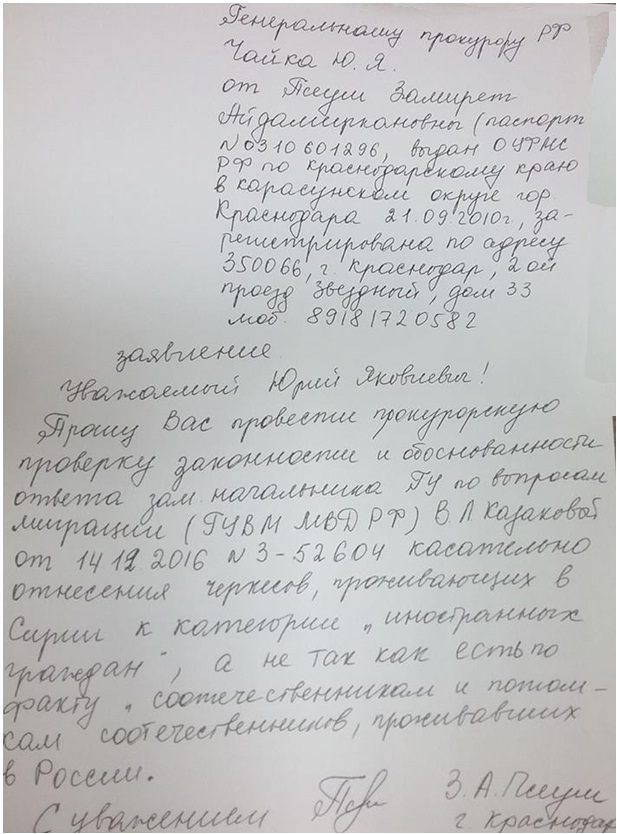 Генеральному прокурору РФ
Чайка Ю. Я.
от Псеуш Замирет
Айдамиркановны (паспорт
N 0310601296, выдан ОУФМС
РФ по краснодарскому краю
в карасунском округе гор.
Краснодара 21.09.2010г, за-
регистрирована по адресу
350066, г. краснодар, 2 ой
проезд Звездный, дом 33
моб. 89181720582
заявление.
Уважаемый Юрий Яковлевич!
Прошу Вас провести прокурорскую
проверку законности и обоснованности
ответа зам. начальника ГУ по вопросам
миграции (ГУВМ МВД РФ) В. Л Казаковой
от 14 12. 2016 N 3-52604 касательно
отнесения черкесов, проживающих в
Сирии к категории „иностранных
граждан", а не так как есть по
факту „соотечественникам и потом-
кам соотечественников, проживавших
в России.
С уважением З. А. Псеуш
г. краснодар